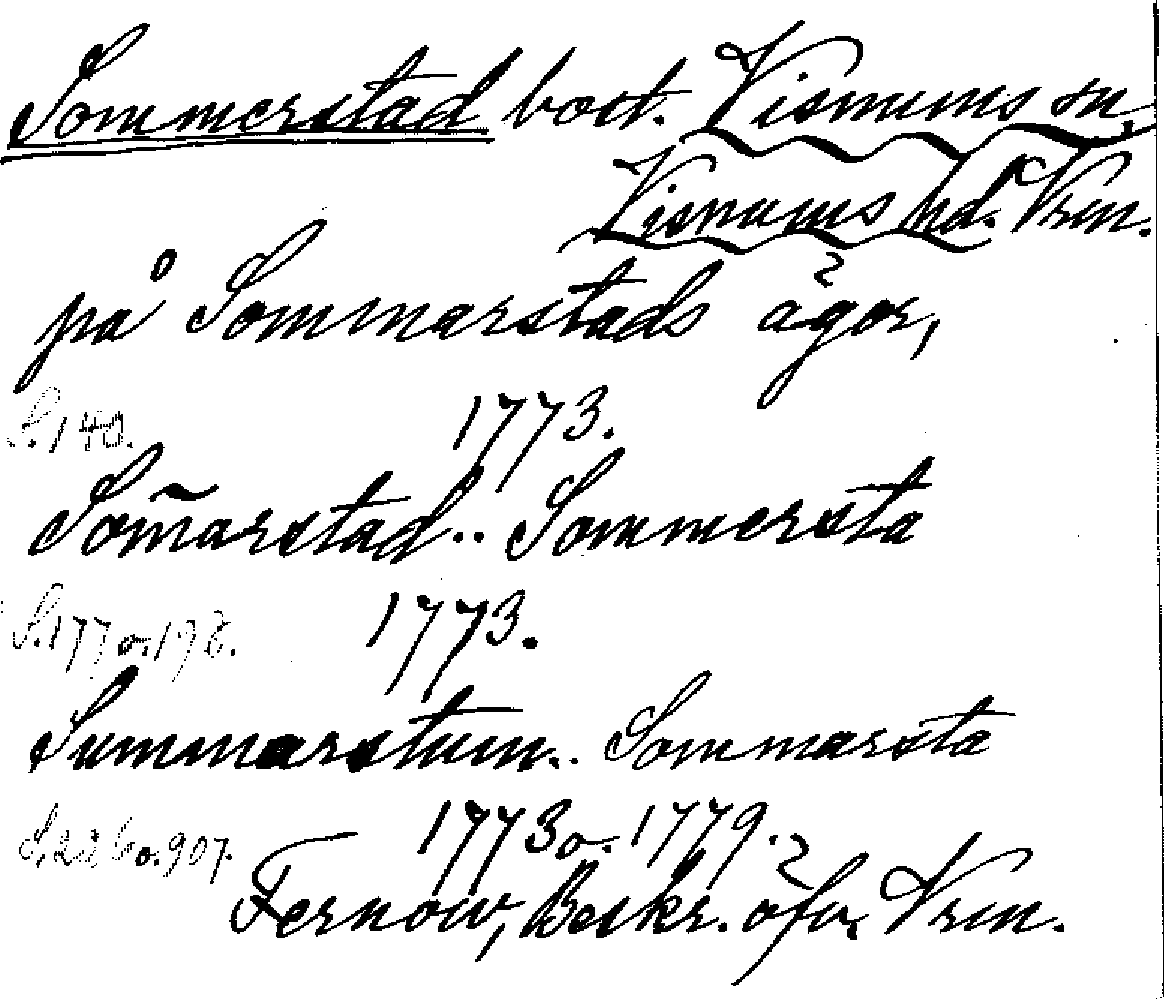 Sommerstad bost. Visnums sn,
Visnums hd. Vrm.
på Sommarstads ägor,
S. 140. 1773.
Som̃arstad.. Sommersta
S. 177 o. 178. 1773.
Summarstum.. Sommarsta
1773 o. 1779.
Fernow, Beskr. öfv. Vrm.